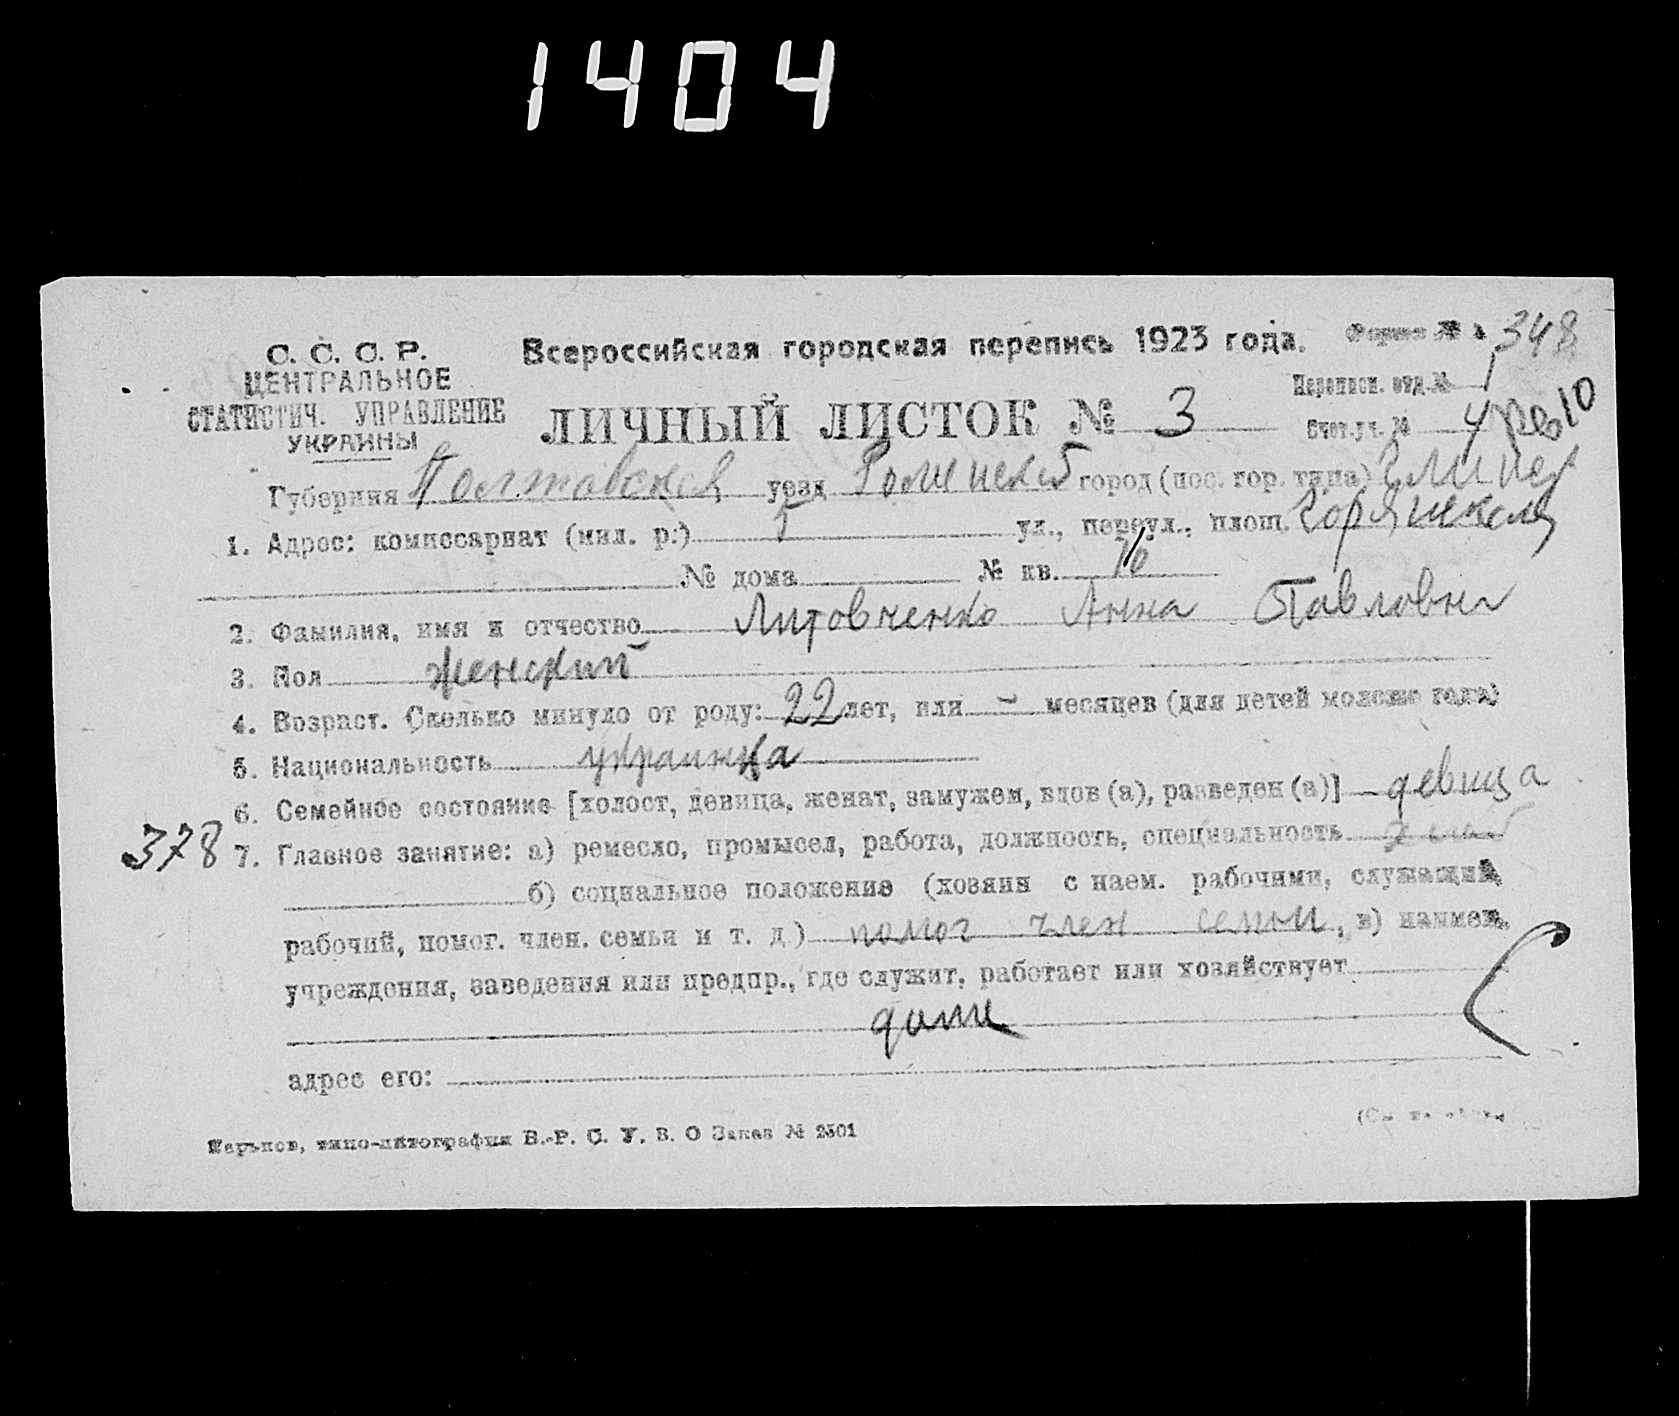 1404
С. С. С. Р.
ЦЕНТРАЛЬНОЕ
СТАТИСТИЧ. УПРАВЛЕНИЕ
УКРАИНЫ
Всероссийская городская перепись 1923 года.
Форма № 348
Переписн. отд. № 1
ЛИЧНЫЙ ЛИСТОК № 3
Счет. уч. № 4
Губерния Полтавская уезд Роменский город (пос. гор. типа)
1. Адрес: комиссариат (мил. р.) ул., переул., площ.
№ дома № кв. 10
2. Фамилия, имя и отчество Литовченко Анна Павловна
3. Пол женский
4. Возраст. Сколько минуло от роду: 22 лет, или – месяцев (для детей моложе года)
5. Национальность украинка
6. Семейное состояние [холост, девица, женат, замужем, вдов (а), разведен (а)] девица
378
7. Главное занятие: а) ремесло, промысел, работа, должность, специальность
б) социальное положение (хозяин с наем. рабочими, служащий,
рабочий, помог. член. семьи и т. д) помог член семьи, в) наимен.
учреждения, заведения или предпр., где служит, работает или хозяйствует
дома
адрес его:
Харьков, типо-литография В.-Р. С. У. В. О Заказ № 2501